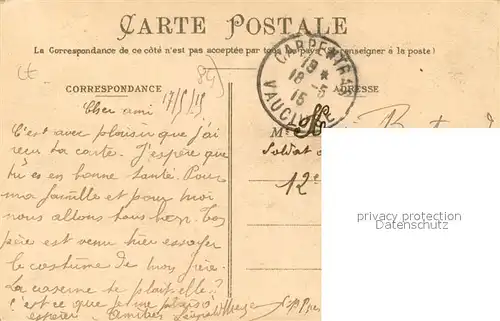 CARTE POSTALE
La Correspondance de ce côté n'est pas acceptée par tous les pays (Se renseigner à la poste)
CARPENTRAS
19 *
18 - 5
15
VAUCLUSE
84
CORRESPONDANCE
ADRESSE
17/5/15
Cher ami
C'est avec plaisir que j'ai
reçu ta carte. J'espère que
tu es en bonne santé. Pour
ma famille et pour moi
nous allons tous bien. Ton
père est venu hier essayer
le costume de mon père.
La caserne te plait-elle?
c'est ce que
espérer Amitiés
M
Soldat
12e
privacy protection
Datenschutz